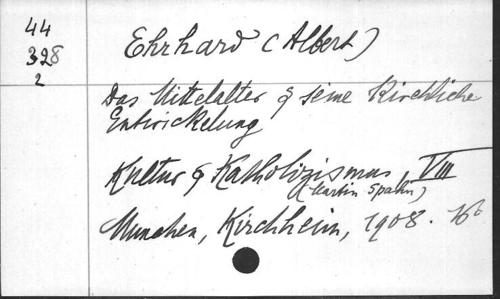 44
328
2
Ehrhard (Albert)
Das Mittelalter & seine Kirchliche
Entwickelung
Kultur & Katholizismus, VIII
(Martin Spahn)
Munchen, Kirchheim, 1908. 16